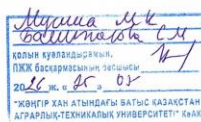 Мусина М.К
Балмпанова С.М
қолын куәландырамын.
ПЖЖ басқармасының басшысы
2026 ж. « 25 » 03
"ЖӘҢГІР ХАН АТЫНДАҒЫ БАТЫС ҚАЗАҚСТАН
АГРАРЛЫҚ-ТЕХНИКАЛЫҚ УНИВЕРСИТЕТІ" КеАҚ